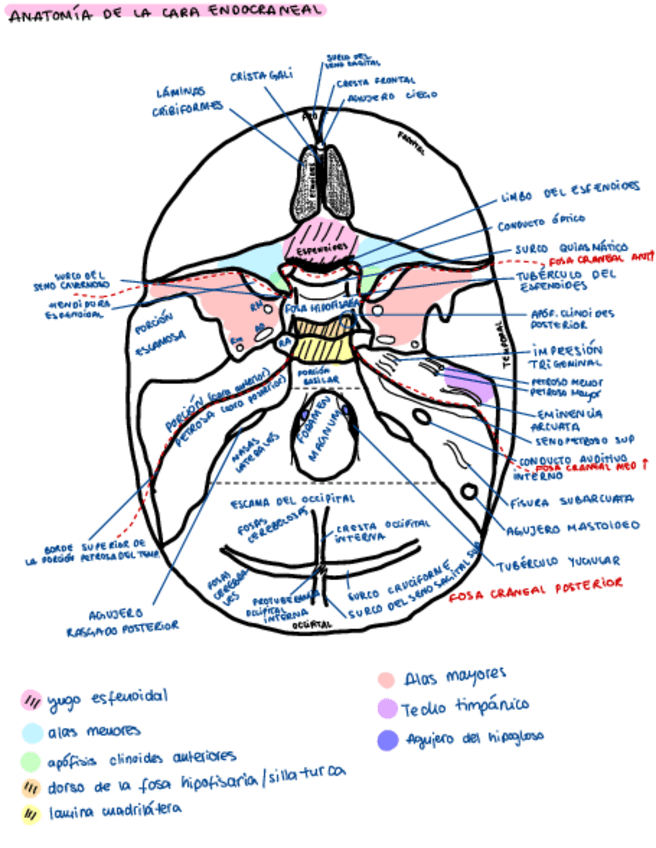 ANATOMÍA DE LA CARA ENDOCRANEAL
SURCO DEL
SENO SAGITAL
CRISTA GALI
CRESTA FRONTAL
LÁMINAS
CRIBIFORMES
AGUJERO CIEGO
FRONTAL
LIMBO DEL ESFENOIDES
CONDUCTO ÓPTICO
ESFENOIDES
SURCO QUIASMÁTICO
FOSA CRANEAL ANT↑
SURCO DEL
SENO CAVERNOSO
TUBÉRCULO DEL
ESFENOIDES
HENDIDURA
ESFENOIDAL
FOSA HIPOFISARIA
APÓF. CLINOIDES
POSTERIOR
PORCIÓN
ESCAMOSA
RA
TEMPORAL
IMPRESIÓN
TRIGEMINAL
PORCIÓN
BASILAR
PETROSO MENOR
PETROSO MAYOR
PORCIÓN (cara anterior)
PETROSA (cara posterior)
EMINENCIA
ARCUATA
FORAMEN
MAGNUM
SENO PETROSO SUP
MASAS
LATERALES
CONDUCTO AUDITIVO
INTERNO
FOSA CRANEAL MED ↑
ESCAMA DEL OCCIPITAL
FISURA SUBARCUATA
FOSAS
CEREBELOSAS
CRESTA OCCIPITAL
INTERNA
AGUJERO MASTOIDEO
BORDE SUPERIOR DE
LA PORCIÓN PETROSA DEL TEMP.
TUBÉRCULO YUGULAR
FOSAS
CEREBRA
LES
PROTUBERANCIA
OCCIPITAL
INTERNA
SURCO CRUCIFORME
SURCO DEL SENO SAGITAL SUP
FOSA CRANEAL POSTERIOR
AGUJERO
RASGADO POSTERIOR
OCCIPITAL
yugo esfenoidal
alas menores
apófisis clinoides anteriores
dorso de la fosa hipofisaria/silla turca
lamina cuadrilátera
Alas mayores
Techo timpánico
Agujero del hipogloso